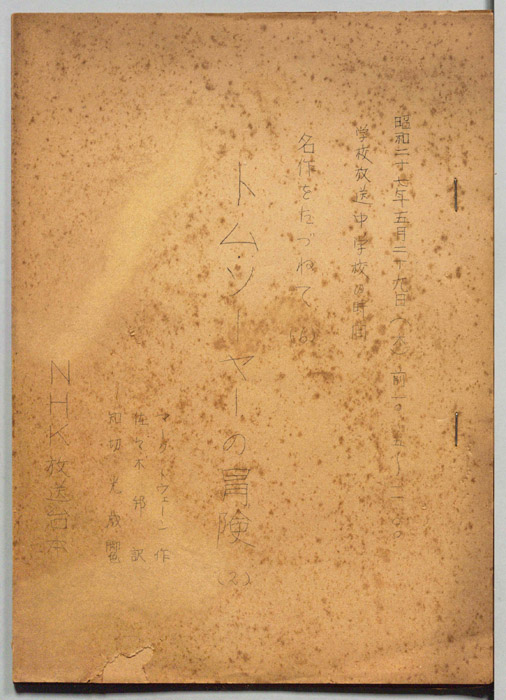 昭和二十七年五月二十九日(木)前一〇・
学校放送中学校の時間
名作をたづねて (6)
トム・ソーヤーの冒険 (2)
マーク・トウェーン 作
佐々木 邦 訳
知切光歳
NHK放送台本